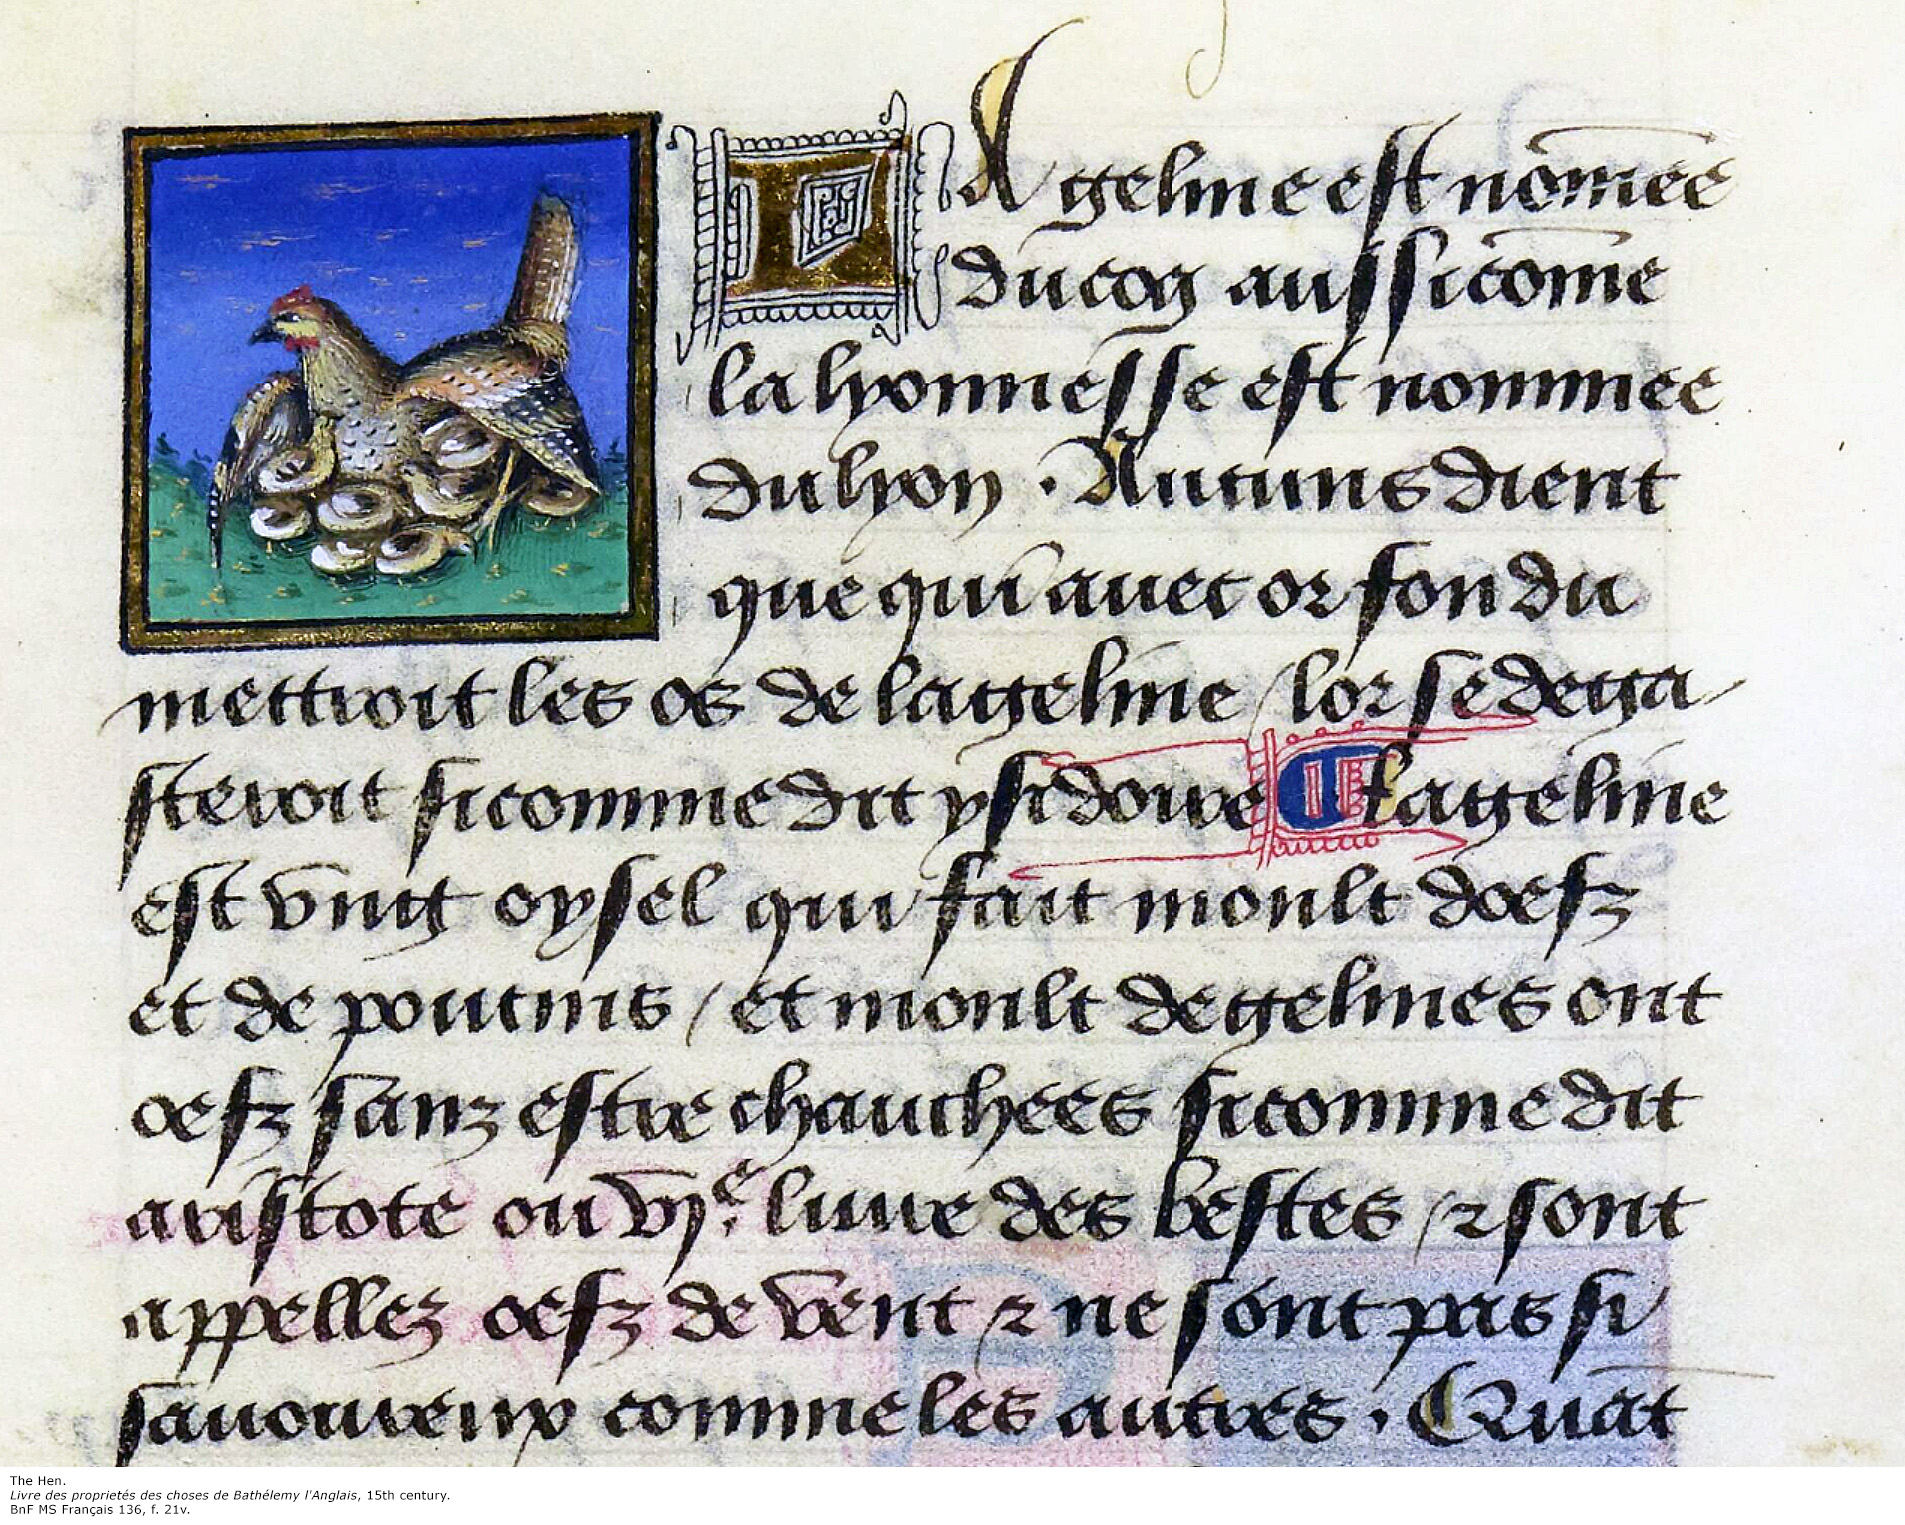 LA geline est nōmee
du coq aussi cōme
la lyonnesse est nommee
du lyon . Aucuns dient
que qui avec or fondu
mettroit les os de la geline / lor se dega
steroit si comme dit ysidore La geline
est vng oysel qui fait moult doefz
et de poucins / et moult de gelines ont
oefz sanz estre chauchees si comme dit
aristote ou vjᵉ. liure des bestes / ⁊ sont
appellez oefz de vent ⁊ ne sont pas si
sauoureux comme les autres . Quāt
The Hen.
Livre des proprietés des choses de Bathélemy l'Anglais, 15th century.
BnF MS Français 136, f. 21v.